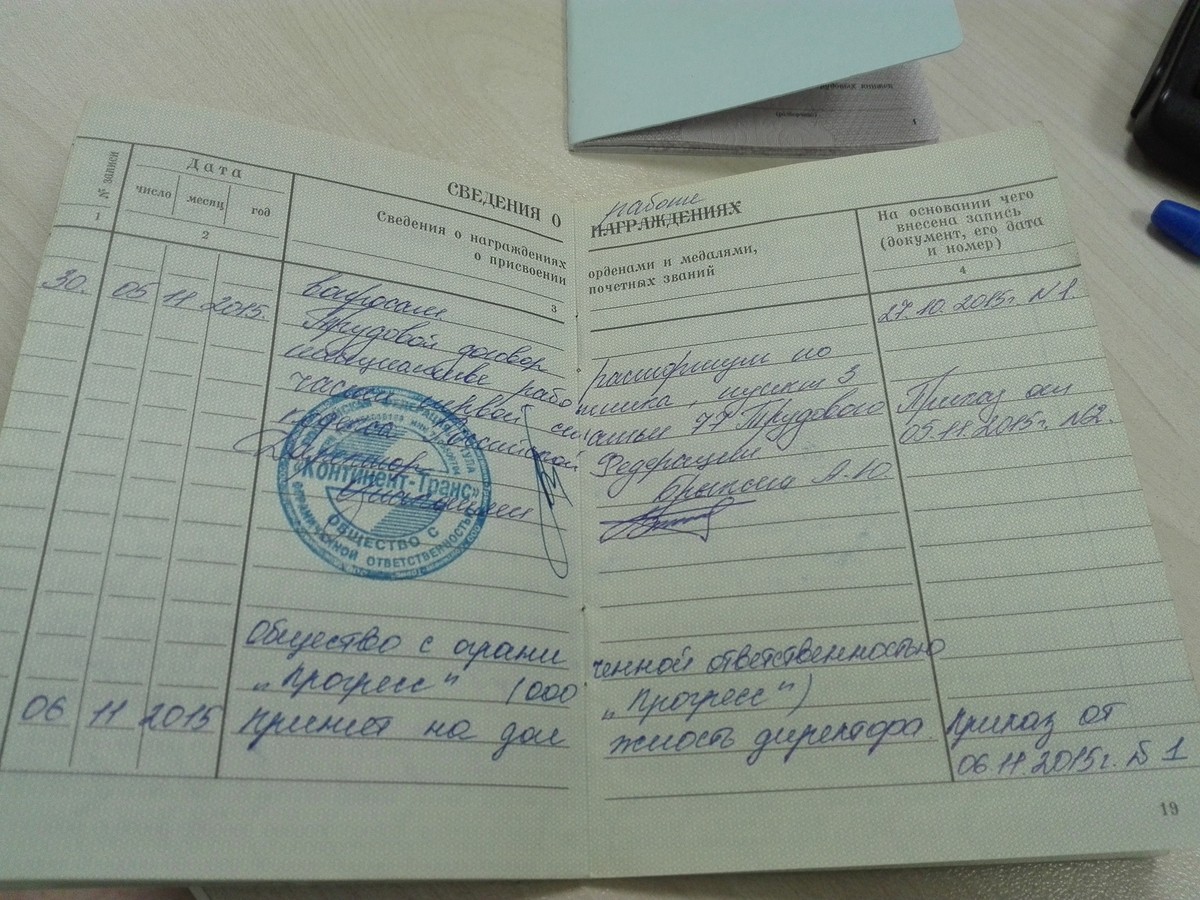 СВЕДЕНИЯ О работе НАГРАЖДЕНИЯХ
№ записи
Дата
число месяц год
Сведения о награждениях орденами и медалями,
о присвоении почетных званий
На основании чего
внесена запись
(документ, его дата
и номер)
1 2 3 4
вопросам 27.10.2015г. N1.
30. 05 11 2015. Трудовой договор расторгнут по
инициативе работника, пункт 3 Приказ от
часть первой статьи 77 Трудового 05.11.2015г. №2.
кодекса Российской Федерации
Директор А.Ю.
«Континент-Транс»
ОБЩЕСТВО С
ОГРАНИЧЕННОЙ ОТВЕТСТВЕННОСТЬЮ
Общество с ограни ченной ответственностью
„Прогресс" (ООО „Прогресс")
06 11 2015 принят на дол жность директора Приказ от
06.11.2015г. № 1
19